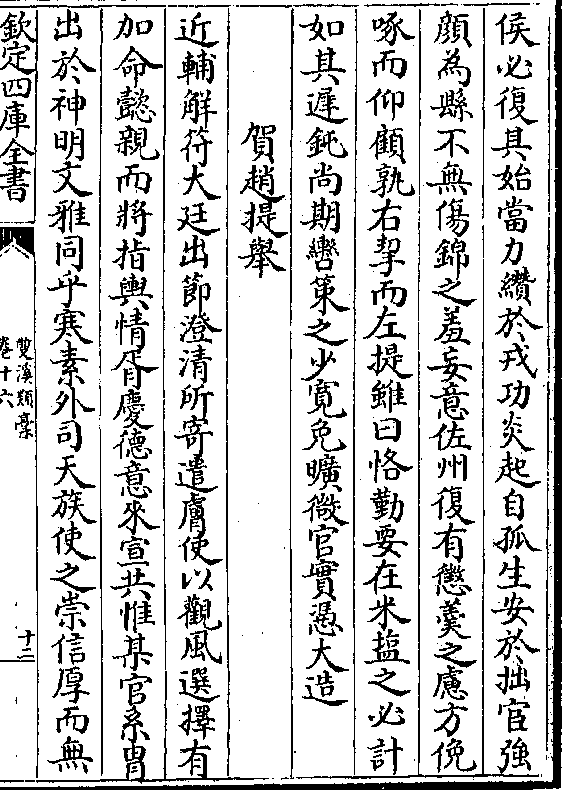 侯必復其始當力纘於戎功炎起自孤生安於拙宦強
顔為縣不無傷錦之羞妄意佐州復有懲羮之慮方俛
啄而仰顧孰右挈而左提雖曰恪勤要在米盐之必計
如其遲鈍尚期轡策之少寛免曠微官實慿大造
賀趙提舉
近輔解符大廷出節澄清所寄遣膚使以觀風選擇有
加命懿親而將指輿情胥慶德意來宣共惟某官系胄
出於神明文雅同乎寒素外司天族使之崇信厚而無
欽定四庫全書
雙溪類藁
卷十六
十二